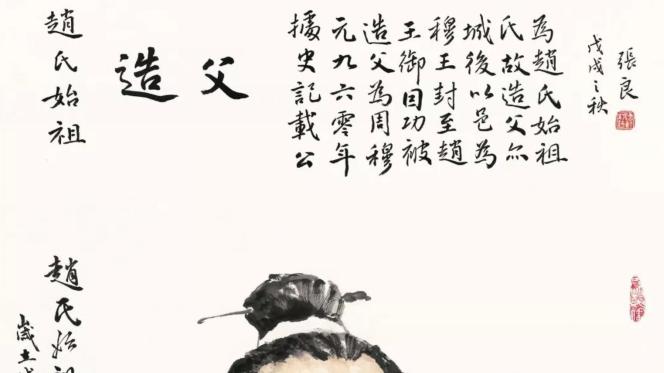 趙氏始祖
造父
據史記載公
元九六零年
造父為周穆
王御因功被
穆王封至趙
城後以邑為
氏故造父亦
為趙氏始祖
戊戌之秋
張良
趙氏始
歲